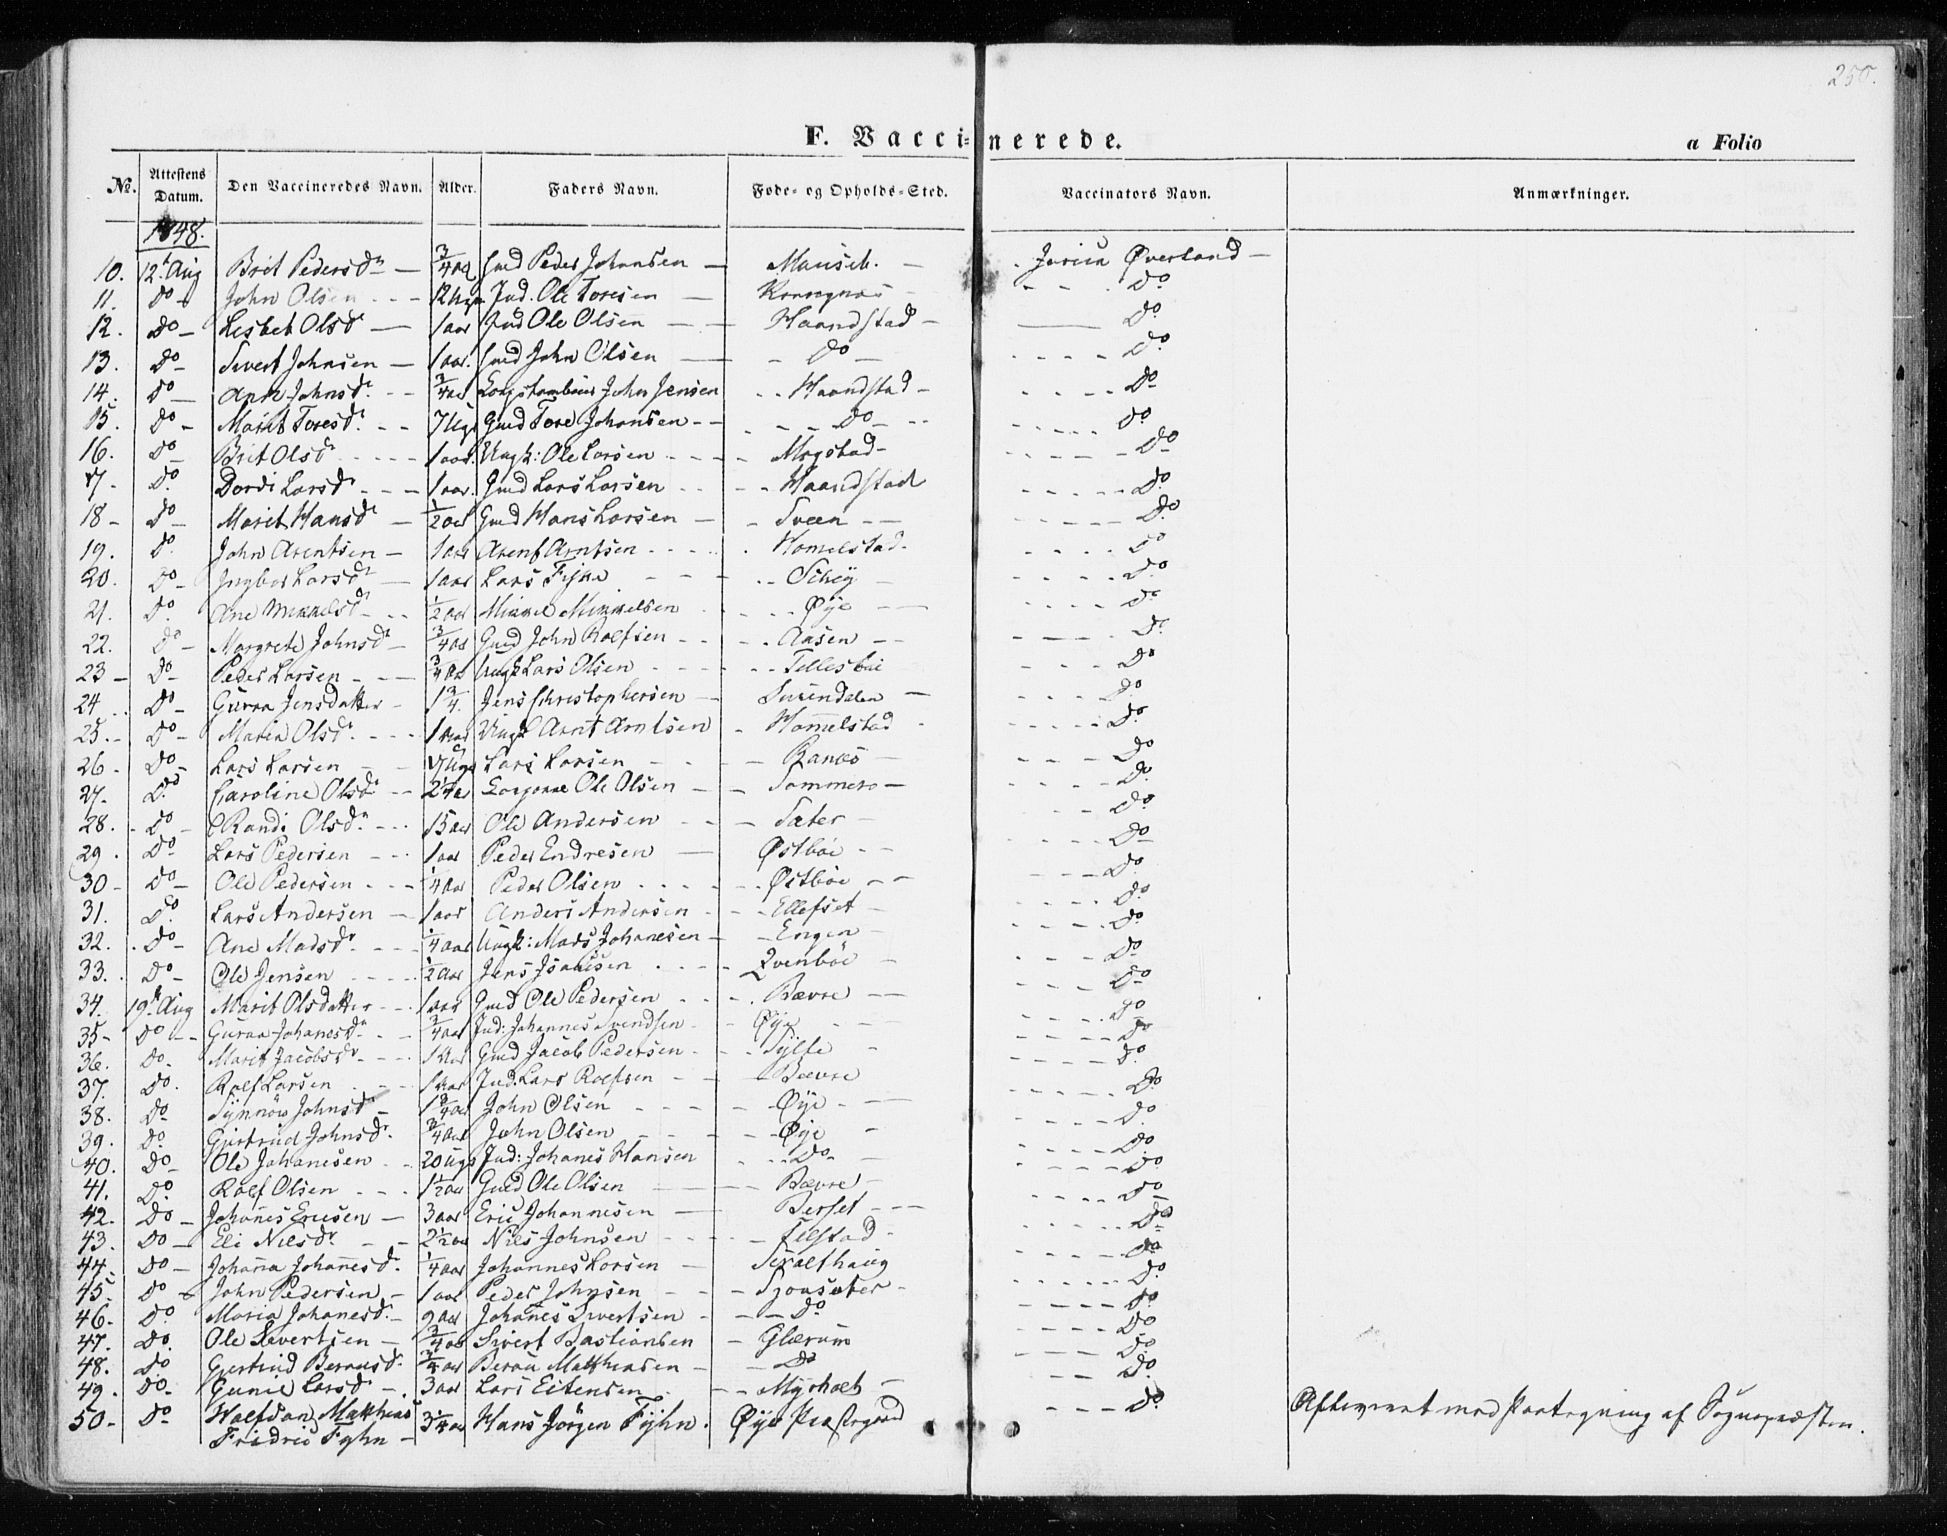 250.
F. Vaccinerede.
a Folio
No. Attestens Datum. Den Vaccineredes Navn. Alder. Faders Navn. Føde- og Opholds-Sted. Vaccinators Navn. Anmærkninger.
1848.
10. 12t Aug Brit Pedersdr — 3/4 aar Gmd Peder Johansen — — Øverland —
11. Do John Olsen - - - Ole Toresen — Do
12. Do — Lisbet Olsdr — 1 aar Ole Olsen — — Haandstad — Do
13. Do Sivert Johnsen — 1 aar. Gmd John Olsen — — Do — Do
14. Do — Ane Johnsdr - - 3/4 aar John Jensen - - Haandstad — Do
15. Do — Marit Toresdr. - - 7 Ugr Gmd Tore Johansen - - Do - - Do
16. Do Brit Olsdr - - - 1 aar. Ungk: Ole Larsen - - - - Mogstad - Do
17 - Do Dordi Larsdr - - - 1 aar. Gmd Lars Larsen - - - Haandstad Do
18 - Do Marit Hansdr — 1/2 aar Gmd Hans Larsen — - Sveen - - Do
19. Do John Arentsen — 1 aar Arent Arntsen - - - Homelstad. Do
20. Do — Ingbor Larsdr — 1 aar Lars - - Do
21. Do Ane Mikkelsdr - - 1/2 aar Mikkel Mikkelsen - - - Øye — Do
22. Do — Margrete Johnsdr — 3/4 aar Gmd John Rolfsen - - - Aasen — Do
23 — Do Peder Larsen - - 3/4 aar Ungk Lars Olsen - - - - Tellesbøe Do
24 - Do — Guraa Jensdatter - 1 3/4. Jens Christophersen — Surendalen — Do
25. - Do — Maria Olsdr. - - - 1 aar Ungk Arnt Arntsen - Homelstad - Do
26 - Do — Lars Larsen 7 Ugr Lars Larsen - - - Ranæs — Do
27 - Do Caroline Olsdr - - Ole Olsen - - Sommero — Do
28. - Do — Randi Olsdr. - - 15 aar Ole Andersen - - - Sæter — Do
29. Do Lars Pedersen - - 1 aar Peder Endresen — Østbøe - - Do
30 - Do — Ole Pedersen - - - 1/4 aar Peder Olsen - - - - Østbøe - - Do
31. Do. Lars Andersen — 1 aar Anders Andersen - - Ellefset — Do
32. Do — Ane Madsdr. - - - 1/4 aar Ungk: Mads Johanesen - - Engen — Do
33. Do — Ole Jensen - - - - 1/2 aar Jens - - - Qvenbøe — Do
34. 19t Aug Marit Olsdatter - - 1 aar Gmd Ole Pedersen - - - Bævre — Do
35 - Do - - Guraa Johanesdr. - 3/4 aar Ind: Johannes Svendsen - Øye - - Do
36. Do - Marit Jacobsdr - - - 1 aar Gmd Jacob Pedersen - - Sylte — Do
37. Do. Rolf Larsen - - 1 aar Ind. Lars Rolfsen - - Bævre Do
38. Do Synnöv Johnsdr — 1 3/4 aar John Olsen - - - - Øye - — Do
39. Do. Gjertrud Johnsdr. 3/4 aar John Olsen - - - Øye — Do
40. Do — Ole Johanesen - - 20 Ugr Ind: Johanes Hansen - - Do — Do
41. Do. Rolf Olsen - - - 1 1/2 aar Gmd Ole Olsen — - - Bævre — Do
42. Do — Johanes Ericsen — 3 aar Eric Johannesen — Berset - - - Do
43. Do — Eli Nilsdr - - 2 1/2 aar Nils Johnsen - - - Do
44. Do — Johana Johanesd. 1/4 aar Johannes Larsen — Do
45. Do John Pedersen — 1 aar Peder Johnsen - - - Do
46 - Do Maria Johanesdr. — 9 aar Johanes Sivertsen - - Do Do
47. Do. Ole Sivertsen — 3/4 aar Sivert Bastiansen - Glærum Do
48. Do Gjertrud Do Do
49. Do — Gunil Larsdr - . 3 aar Lars - - Do
50 - Do Halfdan Matthias 3 1/4 aar Hans Jörgen Fÿhn. Øye Do
Fridric Fyhn —